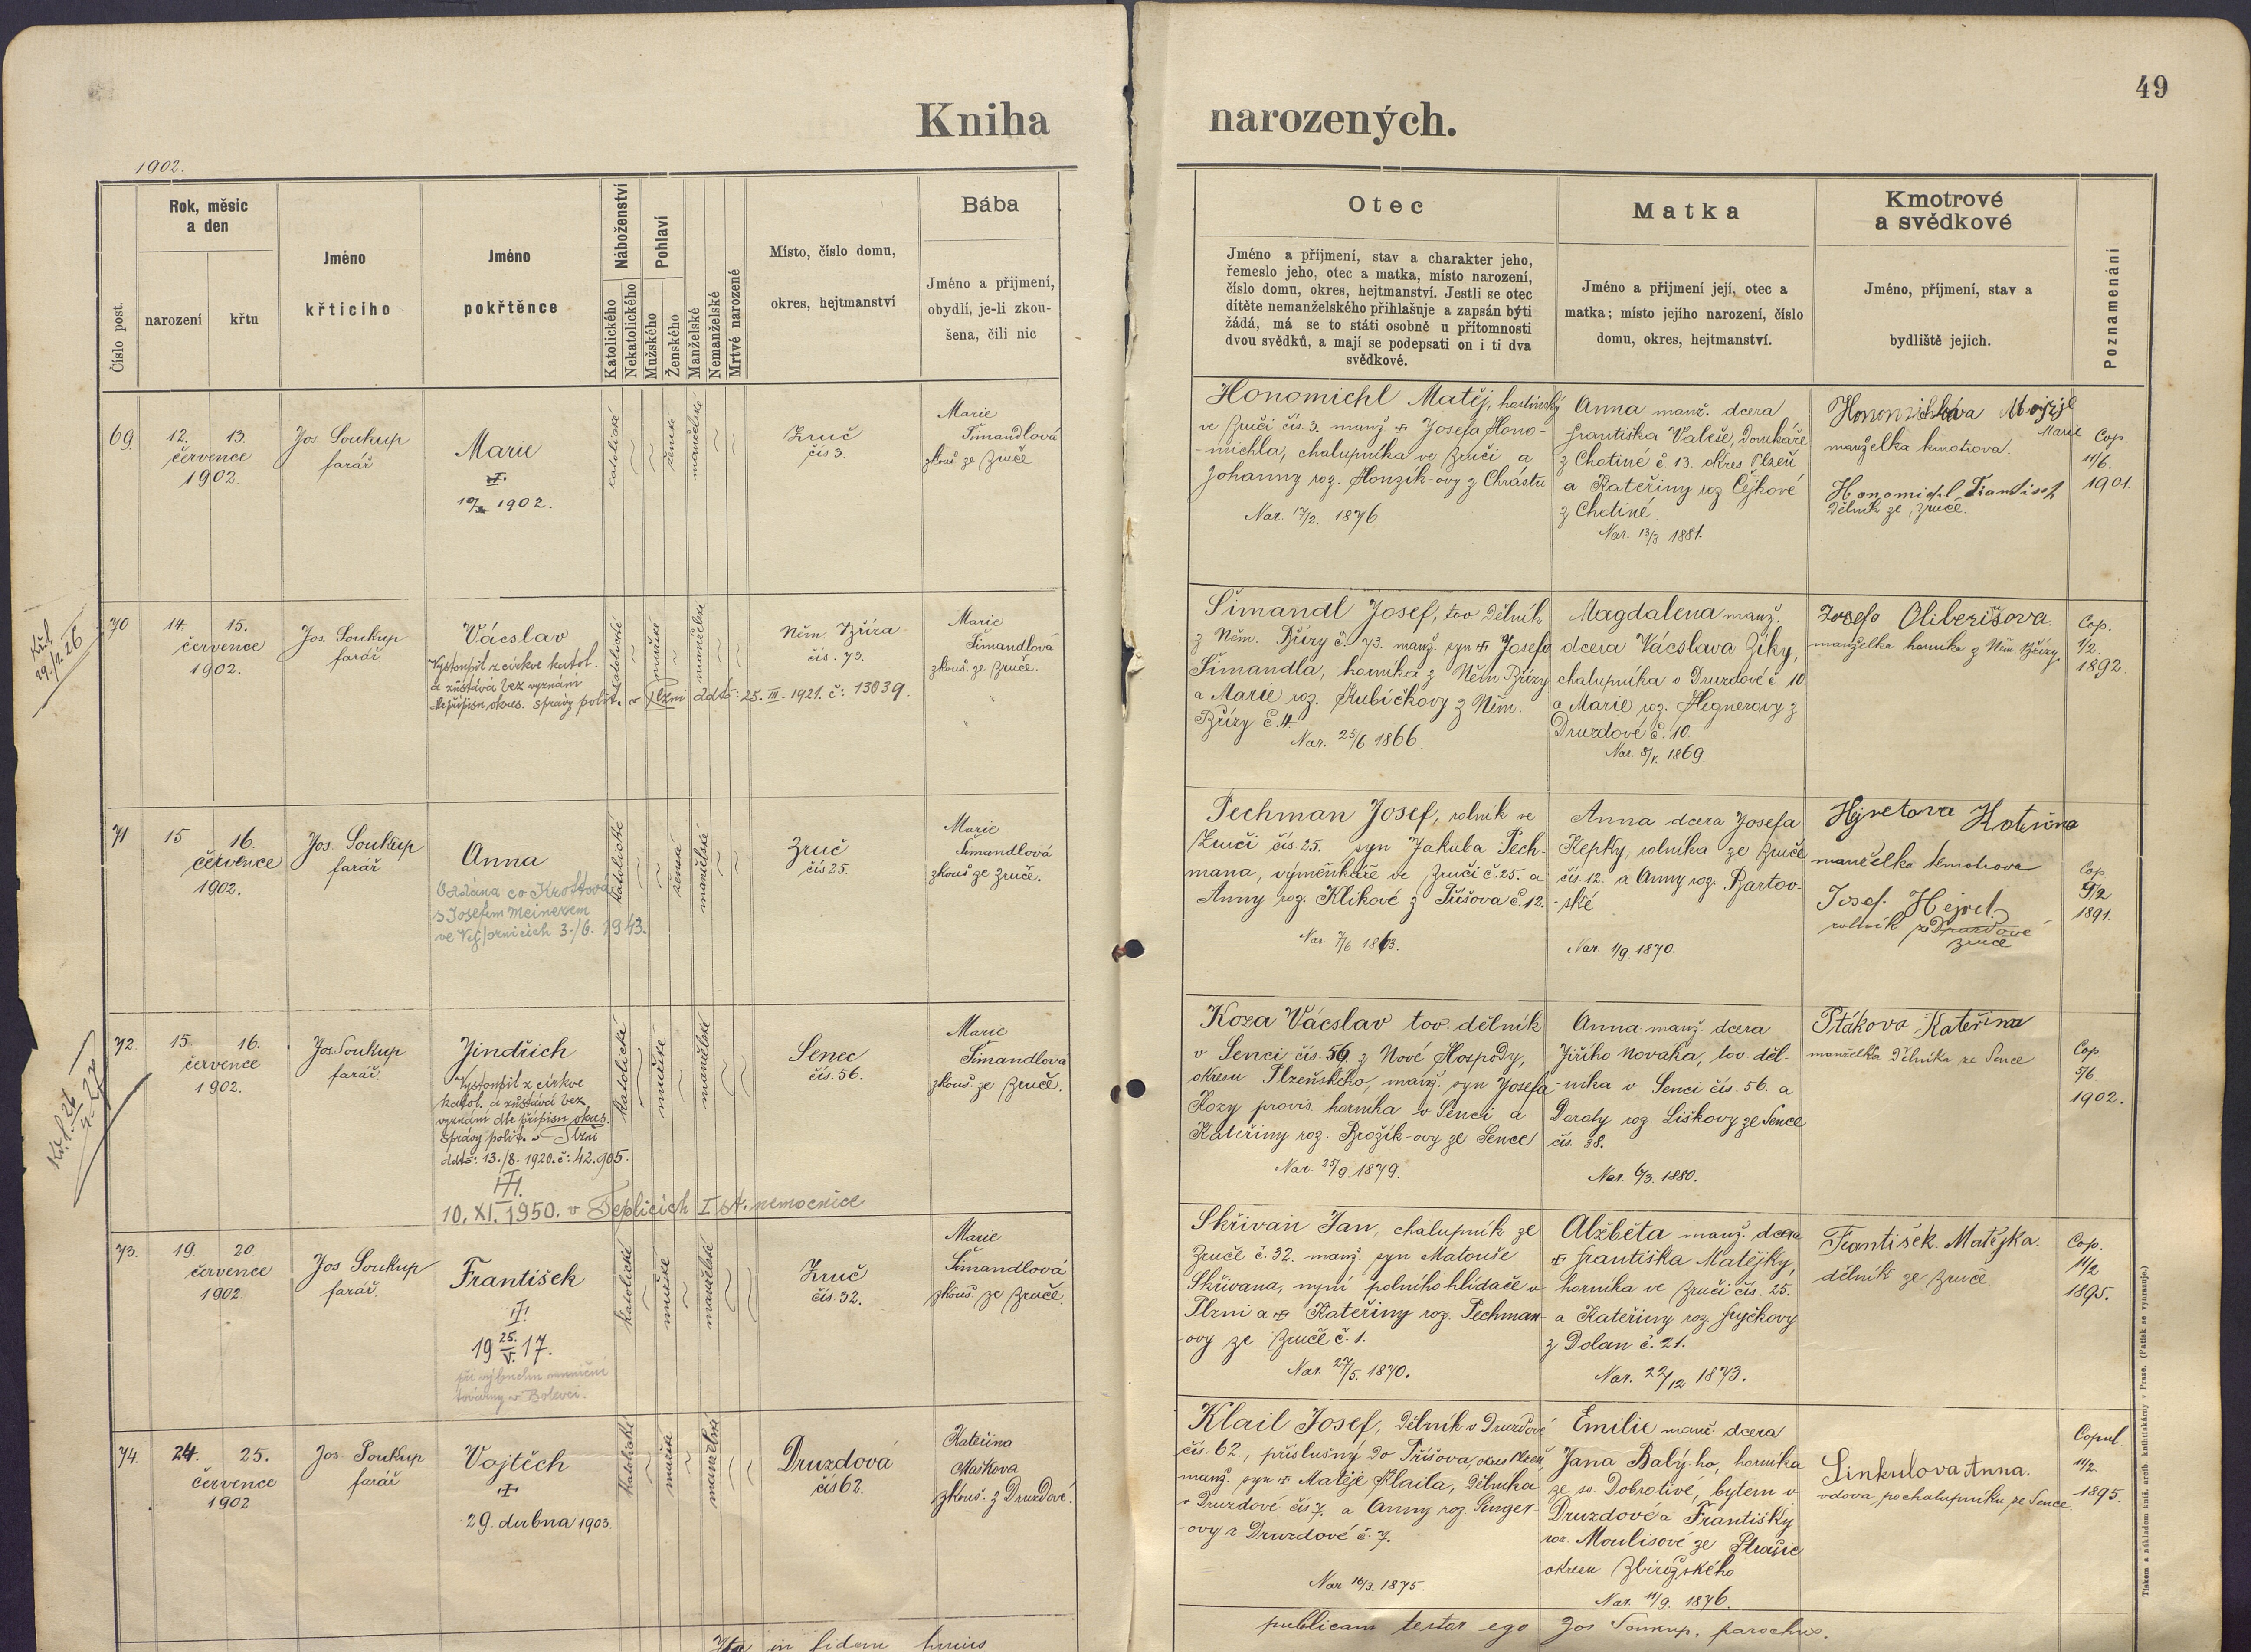 49
Kniha narozených.
1902.
Číslo post.
Rok, měsíc
a den
narození
křtu
Jméno
křticího
Jméno
pokřtěnce
Náboženství
Katolického
Nekatolického
Pohlaví
Mužského
Ženského
Manželské
Nemanželské
Mrtvě narozené
Místo, číslo domu,
okres, hejtmanství
Bába
Jméno a příjmení,
obydlí, je-li zkou-
šena, čili nic
Otec
Jméno a příjmení, stav a charakter jeho,
řemeslo jeho, otec a matka, místo narození,
číslo domu, okres, hejtmanství. Jestli se otec
dítěte nemanželského přihlašuje a zapsán býti
žádá, má se to státi osobně u přítomnosti
dvou svědků, a mají se podepsati on i ti dva
svědkové.
Matka
Jméno a příjmení její, otec a
matka; místo jejího narození, číslo
domu, okres, hejtmanství.
Kmotrové
a svědkové
Jméno, příjmení, stav a
bydliště jejich.
Poznamenání
69
12. 13.
července
1902.
Jos. Soukup
farář
Marie
1902.
katolické
ženské
manželské
Zruč
čís 3.
Marie
Šimandlová
zkouš ze Zruče
Honomichl Matěj, hostinský
ve Zruči čís. 3. manž. Josefa Hono-
-michla, chalupníka ve Zruči a
Johanny roz. Honzík-ovy z Chrástu
Nar. 17/2. 1876.
Anna manž. dcera
Františka Valeše, domkáře
z Chotiné č 13. okres Plzeň
a Kateřiny roz Cejkové
z Chotiné
Nar. 13/3 1881.
Marie
manželka kmotrova.
Honomichl František
dělník ze Zruče.
Cop.
11/6.
1901.
70
14. 15.
července
1902.
Jos. Soukup
farář
Vácslav
Vystoupil z církve katol.
a zůstává bez vyznání
dle přípisu okres. správy polit. v Plzni ddto: 25. III. 1921. č: 13039.
katolické
mužské
manželské
Něm. Bříza
čís. 73.
Marie
Šimandlová
zkouš ze Zruče.
Šimandl Josef, tov dělník
z Něm. Břízy č. 73. manž. syn Josefa
Šimandla, horníka z Něm Břízy
a Marie roz. Kubíčkovy z Něm.
Břízy č. 4
Nar. 25/6 1866.
Magdalena manž.
dcera Vácslava Ziky,
chalupníka v Druzdové č 10
a Marie roz. Hegnerovy z
Druzdové č. 10.
Nar. 8/5. 1869.
Josefa Oliberišova.
manželka horníka z Něm Břízy
Cop.
1/2.
1892.
71
15 16.
července
1902.
Jos. Soukup
farář
Anna
Oddána co Kroftová
s Josefem Meinerem
3./6. 1943.
katolické
ženské
manželské
Zruč
čís 25.
Marie
Šimandlová
zkouš ze Zruče.
Pechman Josef, rolník ve
Zruči čís. 25. syn Jakuba Pech-
mana, výměnkáře ve Zruči č. 25. a
Anny roz. Klikové z Třšova č. 12.
Nar. 7/6 1863.
Anna dcera Josefa
Kepky, rolníka ze Zruče
čís. 12. a Anny roz. Bartov-
-ské
Nar. 1/9. 1870.
manželka kmotrova
Josef. Hejret
rolník z Druzdové
Zruče
Cop
9/2
1891.
72.
15. 16.
července
1902.
Jos. Soukup
farář
Jindřich
Vystoupil z církve
katol. a zůstává bez
vyznání dle přípisu okres.
správy polit. v Plzni
ddto: 13./8. 1920. č: 42.905.
10. XI. 1950. v Teplicích I st. nemocnice
katolické
mužské
manželské
Senec
čís. 56.
Marie
Šimandlová
zkouš. ze Zruče.
Koza Vácslav tov. dělník
v Senci čís. 56. z Nové Hospody,
okresu Plzeňského, manž. syn Josefa
Kozy provis. horníka v Senci a
Kateřiny roz. Brožík-ovy ze Sence
Nar. 25/9. 1879.
Anna manž. dcera
Jiřího Nováka, tov. děl-
-níka v Senci čís. 56. a
Doroty roz. Liškovy ze Sence
čís. 38.
Nar. 6/3. 1880.
Ptákova Kateřina
manželka dělníka ze Sence
Cop
5/6.
1902.
73.
19. 20.
července
1902
Jos Soukup
farář.
František
19 25./V. 17.
při výbuchu muniční
továrny v Bolevci.
katolické
mužské
manželské
Zruč
čís. 32.
Marie
Šimandlová
zkouš. ze Zruče.
Skřivan Jan, chalupník ze
Zruče č. 32. manž. syn Matouše
Skřivana, nyní polního hlídače v
Plzni a Kateřiny roz. Pechman-
-ovy ze Zruče č. 1.
Nar. 27/5. 1870.
Alžběta manž. dcera
Františka Matějky,
horníka ve Zruči čís. 25.
a Kateřiny roz. Fryčkovy
z Dolan č. 21.
Nar. 22/12 1873.
František. Matějka.
dělník ze Zruče.
Cop.
11/2
1895.
74.
24. 25.
července
1902
Jos. Soukup
farář
Vojtěch
29. dubna 1903.
katolické
mužské
manželské
Druzdová
čís 62.
Kateřina
Maškova
zkouš. z Druzdové.
Klail Josef, dělník v Druzdové
čís. 62., příslušný do Příšova, okres Plzeň,
manž. syn Matěje Klaila, dělníka
v Druzdové čís 7. a Anny roz. Singer-
-ovy z Druzdové č. 7.
Nar 16/3. 1875.
Emilie manž. dcera
Jana Balý-ho, horníka
ze sv. Dobrotivé, bytem v
Druzdové a Františky
roz. Moulisové ze Strašic
okresu Zbirožského
Nar. 11/9. 1876.
Sinkulova Anna.
vdova po chalupníku ze Sence
Copul
11/2.
1895.
Ita in fidem hujus publicam testor ego Jos Soukup, parochus.
Tiskem a nákladem kníž. arcib. knihtiskárny v Praze. (Patisk se vyhrazuje.)